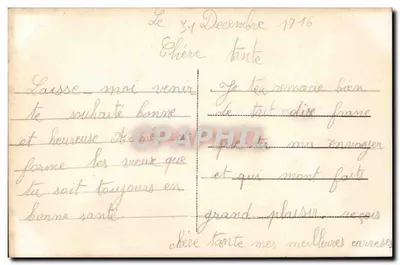 Le 31 Decembre 1916
Chère tente
Laisse-moi venir
te souhaité bonne
et houreuse
forme les vieux que
tu soit toujours en
bonne santé
Je te remercie bien
tait dise franc
que tu ma envoyer
et qui mont faite
grand plaisir reçois
chère tante mes meilleures carresses
CPAPHIL